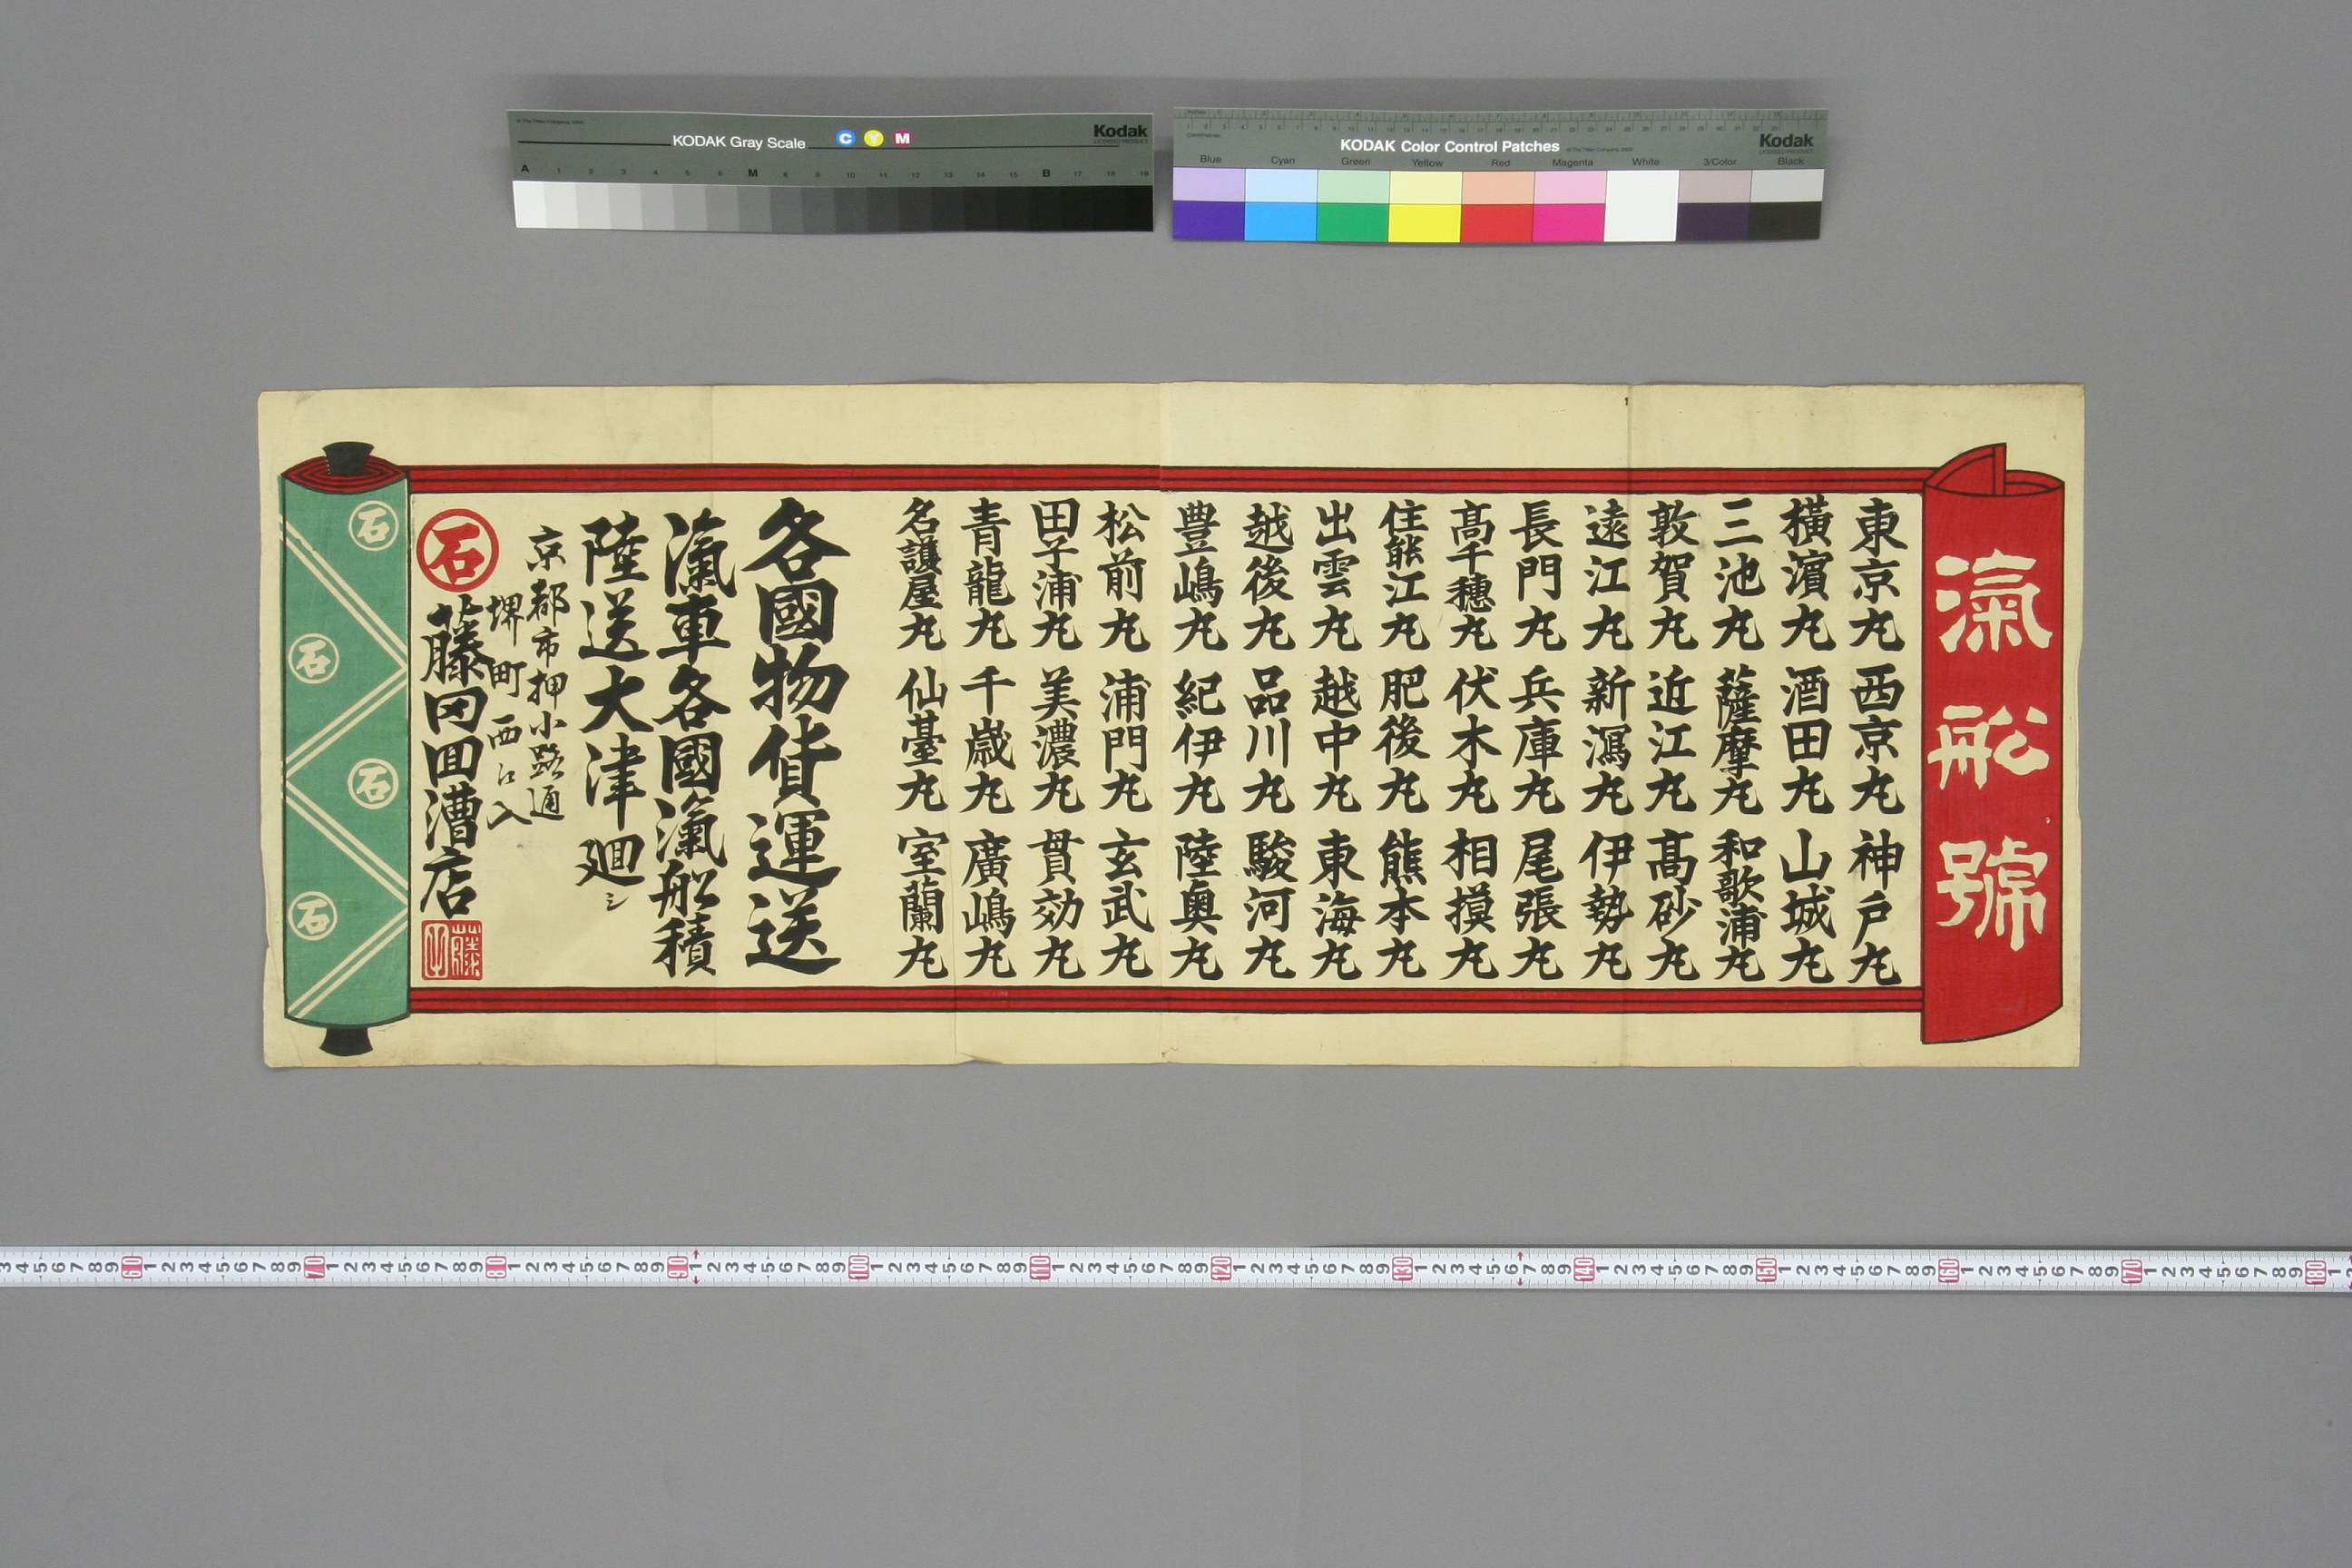 滊船號
東京丸 西京丸 神戸丸
横濱丸 酒田丸 山城丸
三池丸 薩摩丸 和歌浦丸
敦賀丸 近江丸 高砂丸
遠江丸 新潟丸 伊勢丸
長門丸 兵庫丸 尾張丸
髙千穗丸 伏木丸 相摸丸
住熊江丸 肥後丸 熊本丸
出雲丸 越中丸 東海丸
越後丸 品川丸 駿河丸
豊嶋丸 紀伊丸 陸奥丸
松前丸 浦門丸 玄武丸
田子浦丸 美濃丸 貫効丸
青龍丸 千歳丸 廣嶋丸
名護屋丸 仙臺丸 室蘭丸
各國物貨運送
滊車各國滊船積
陸送大津廻シ
京都市押小路通
堺町西口入
石 藤田回漕店
石
石
石
石
KODAK Gray Scale C Y M Kodak
LICENSED PRODUCT
A 1 2 3 4 5 6 M 8 9 10 11 12 13 14 15 B 17 18 19
KODAK Color Control Patches Kodak
LICENSED PRODUCT
Blue Cyan Green Yellow Red Magenta White 3/Color Black